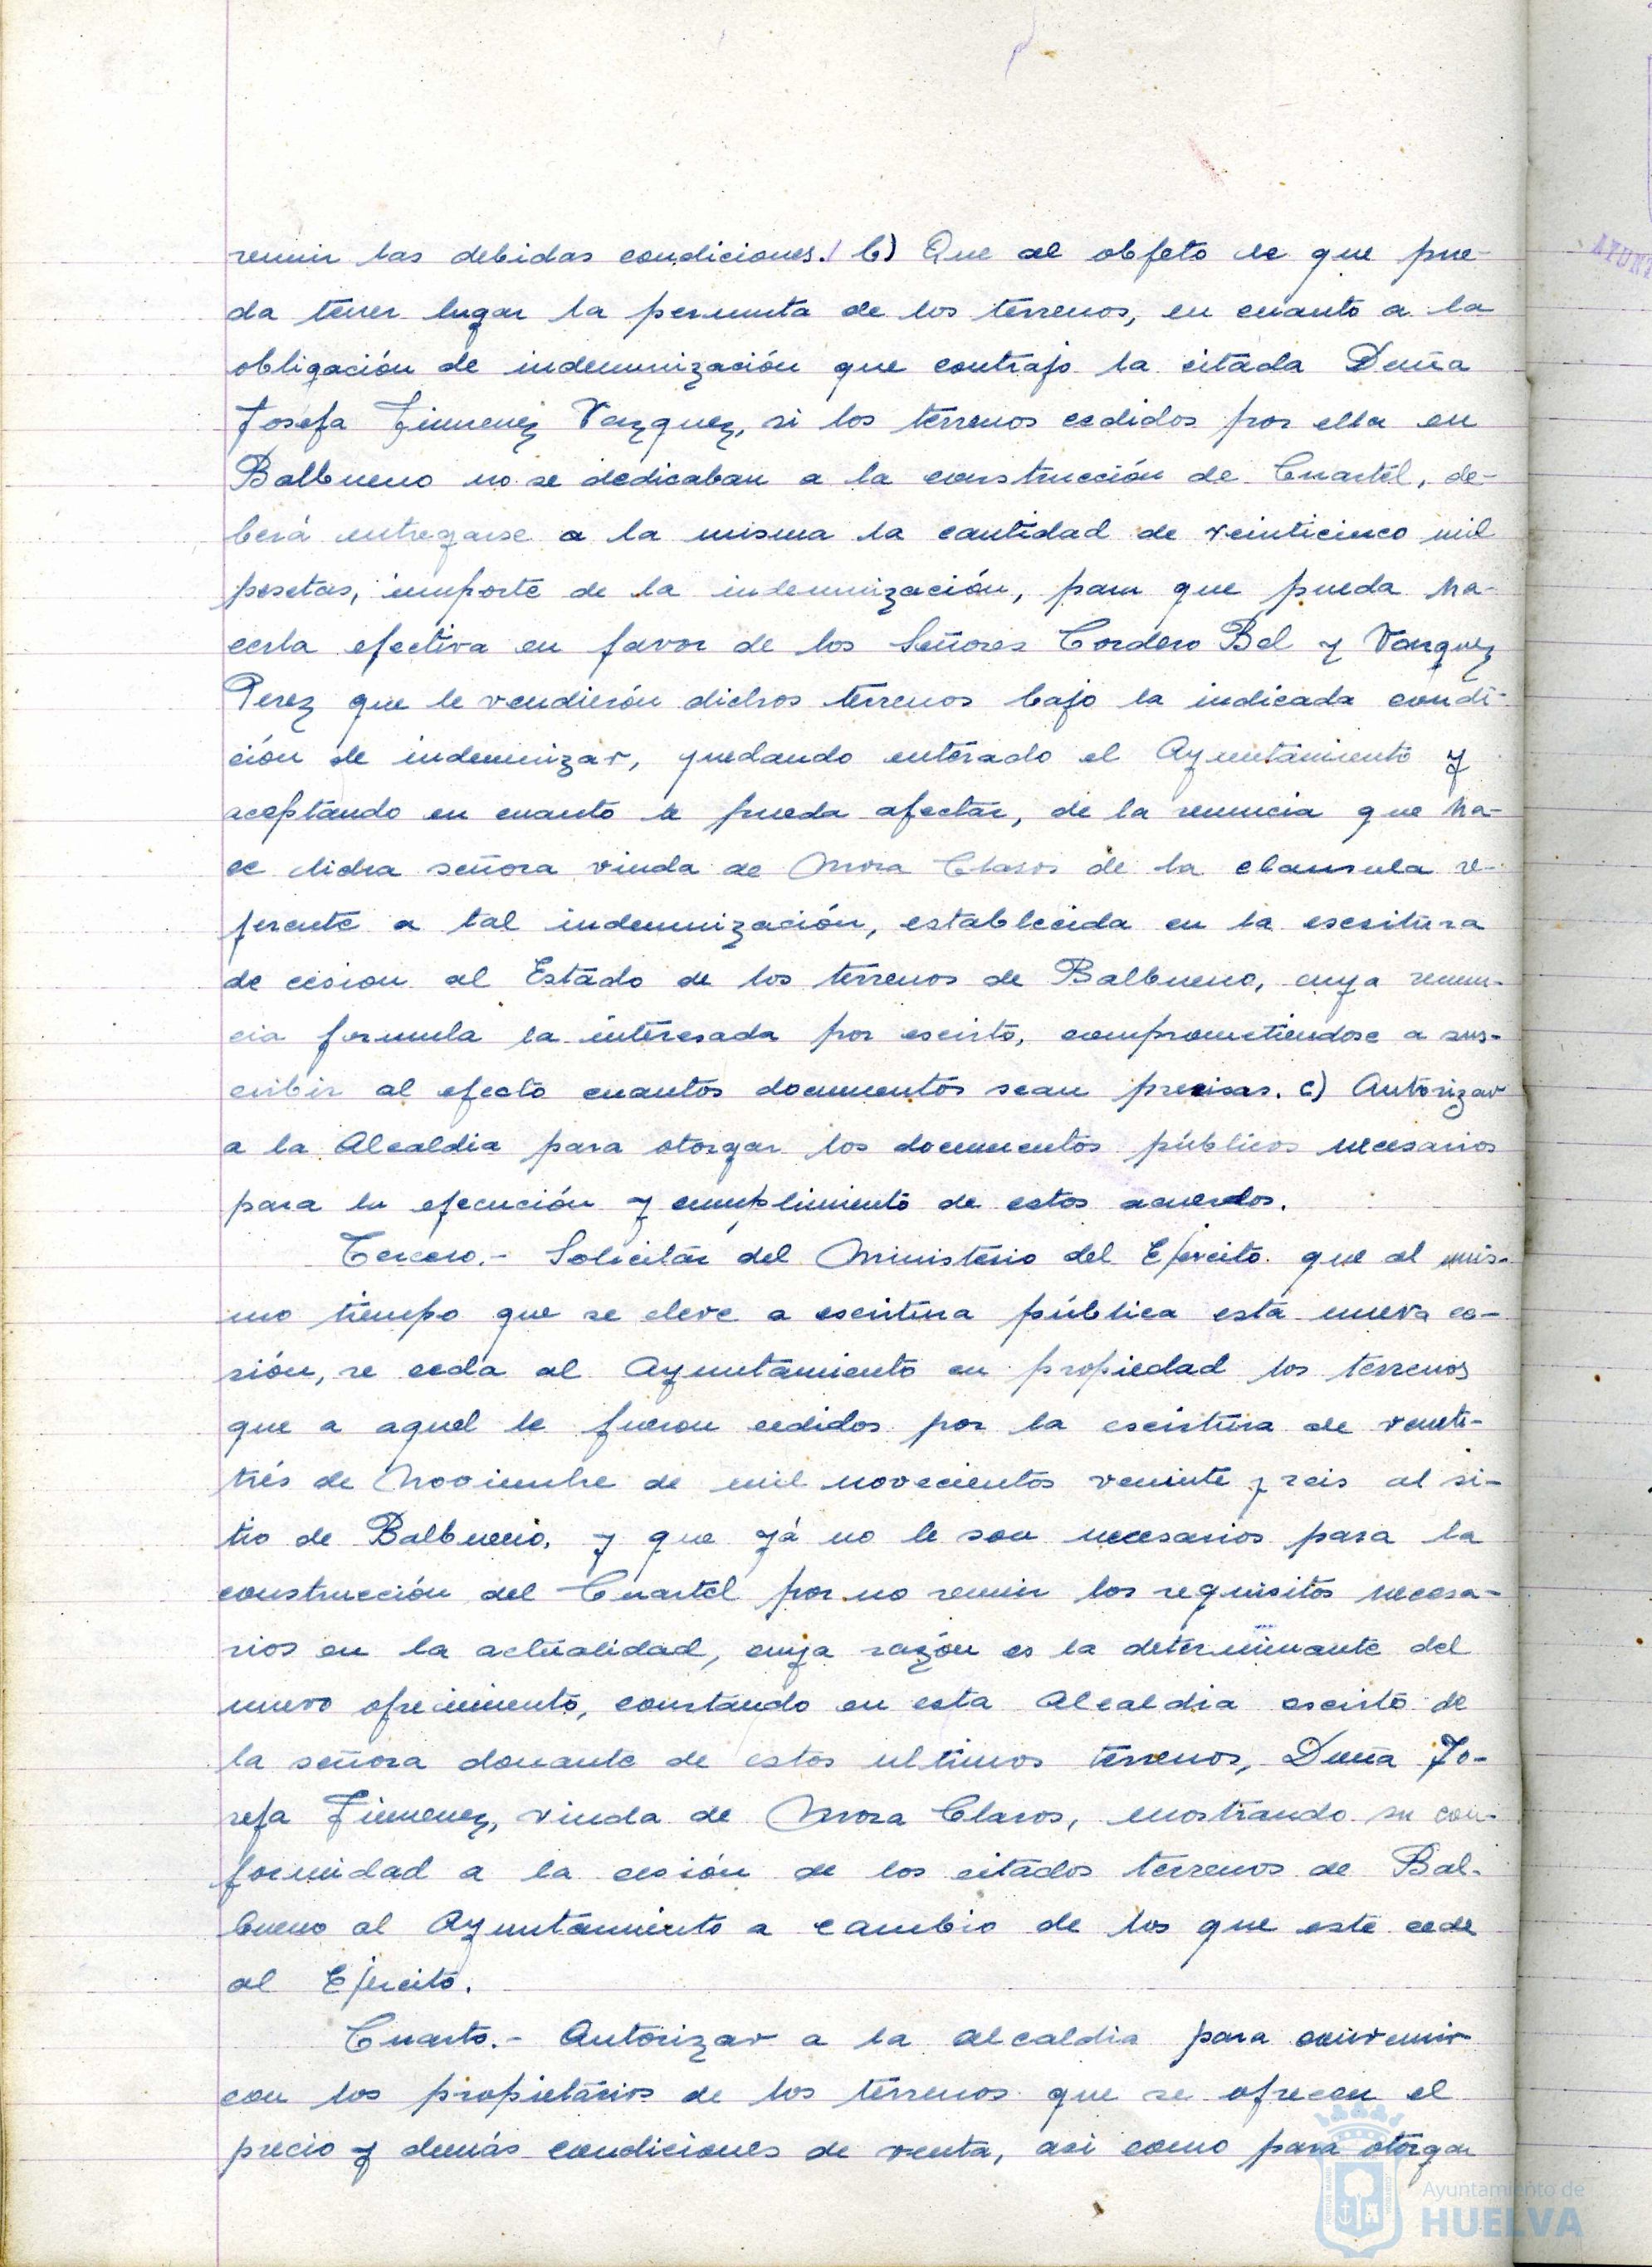 reunir las debidas condiciones. b) Que al objeto de que pue-
da tener lugar la permuta de los terrenos, en cuanto a la
obligación de indemnización que contrajo la citada Doña
Josefa Jimenez Vazquez, si los terrenos cedidos por ella en
Balbueno no se dedicaban a la construcción de Cuartel, de-
berá entregarse a la misma la cantidad de veinticinco mil
pesetas, importe de la indemnización, para que pueda ha-
cerla efectiva en favor de los Señores Cordero Bel y Vazquez
Perez que le vendierón dichos terrenos bajo la indicada condi-
ción de indemnizar, quedando enterado el Ayuntamiento y
aceptando en cuanto le pueda afectar, de la renuncia que ha-
ce dicha señora viuda de Mora Claros de la clausula re-
ferente a tal indemnización, establecida en la escritura
de cesion al Estado de los terrenos de Balbueno, cuya renun-
cia formula la interesada por escrito, comprometiendose a sus-
cribir al efecto cuantos documentos sean precisas. c) Autorizar
a la Alcaldia para otorgar los documentos públicos necesarios
para la ejecución y cumplimiento de estos acuerdos.
Tercero.- Solicitar del Ministerio del Ejercito que al mis-
mo tiempo que se eleve a escritura pública esta nueva ce-
sión, se ceda al Ayuntamiento en propiedad los terrenos
que a aquel le fueron cedidos por la escritura de venti-
trés de Noviembre de mil novecientos veninte y seis al si-
tio de Balbueno, y que yá no le son necesarios para la
construcción del Cuartel por no reunir los requisitos necesa-
rios en la actualidad, cuya razón es la determinante del
nuevo ofrecimiento, constando en esta Alcaldia escrito de
la señora donante de estos ultimos terrenos, Doña Jo-
sefa Jimenez, viuda de Mora Claros, mostrando su con-
formidad a la cesión de los citados terrenos de Bal-
bueno al Ayuntamiento a cambio de los que este cede
al Ejercito.
Cuarto.- Autorizar a la alcaldia para convenir
con los propietarios de los terrenos que se ofrecen el
precio y demás condiciones de venta, asi como para otorgar
Ayuntamiento de
HUELVA